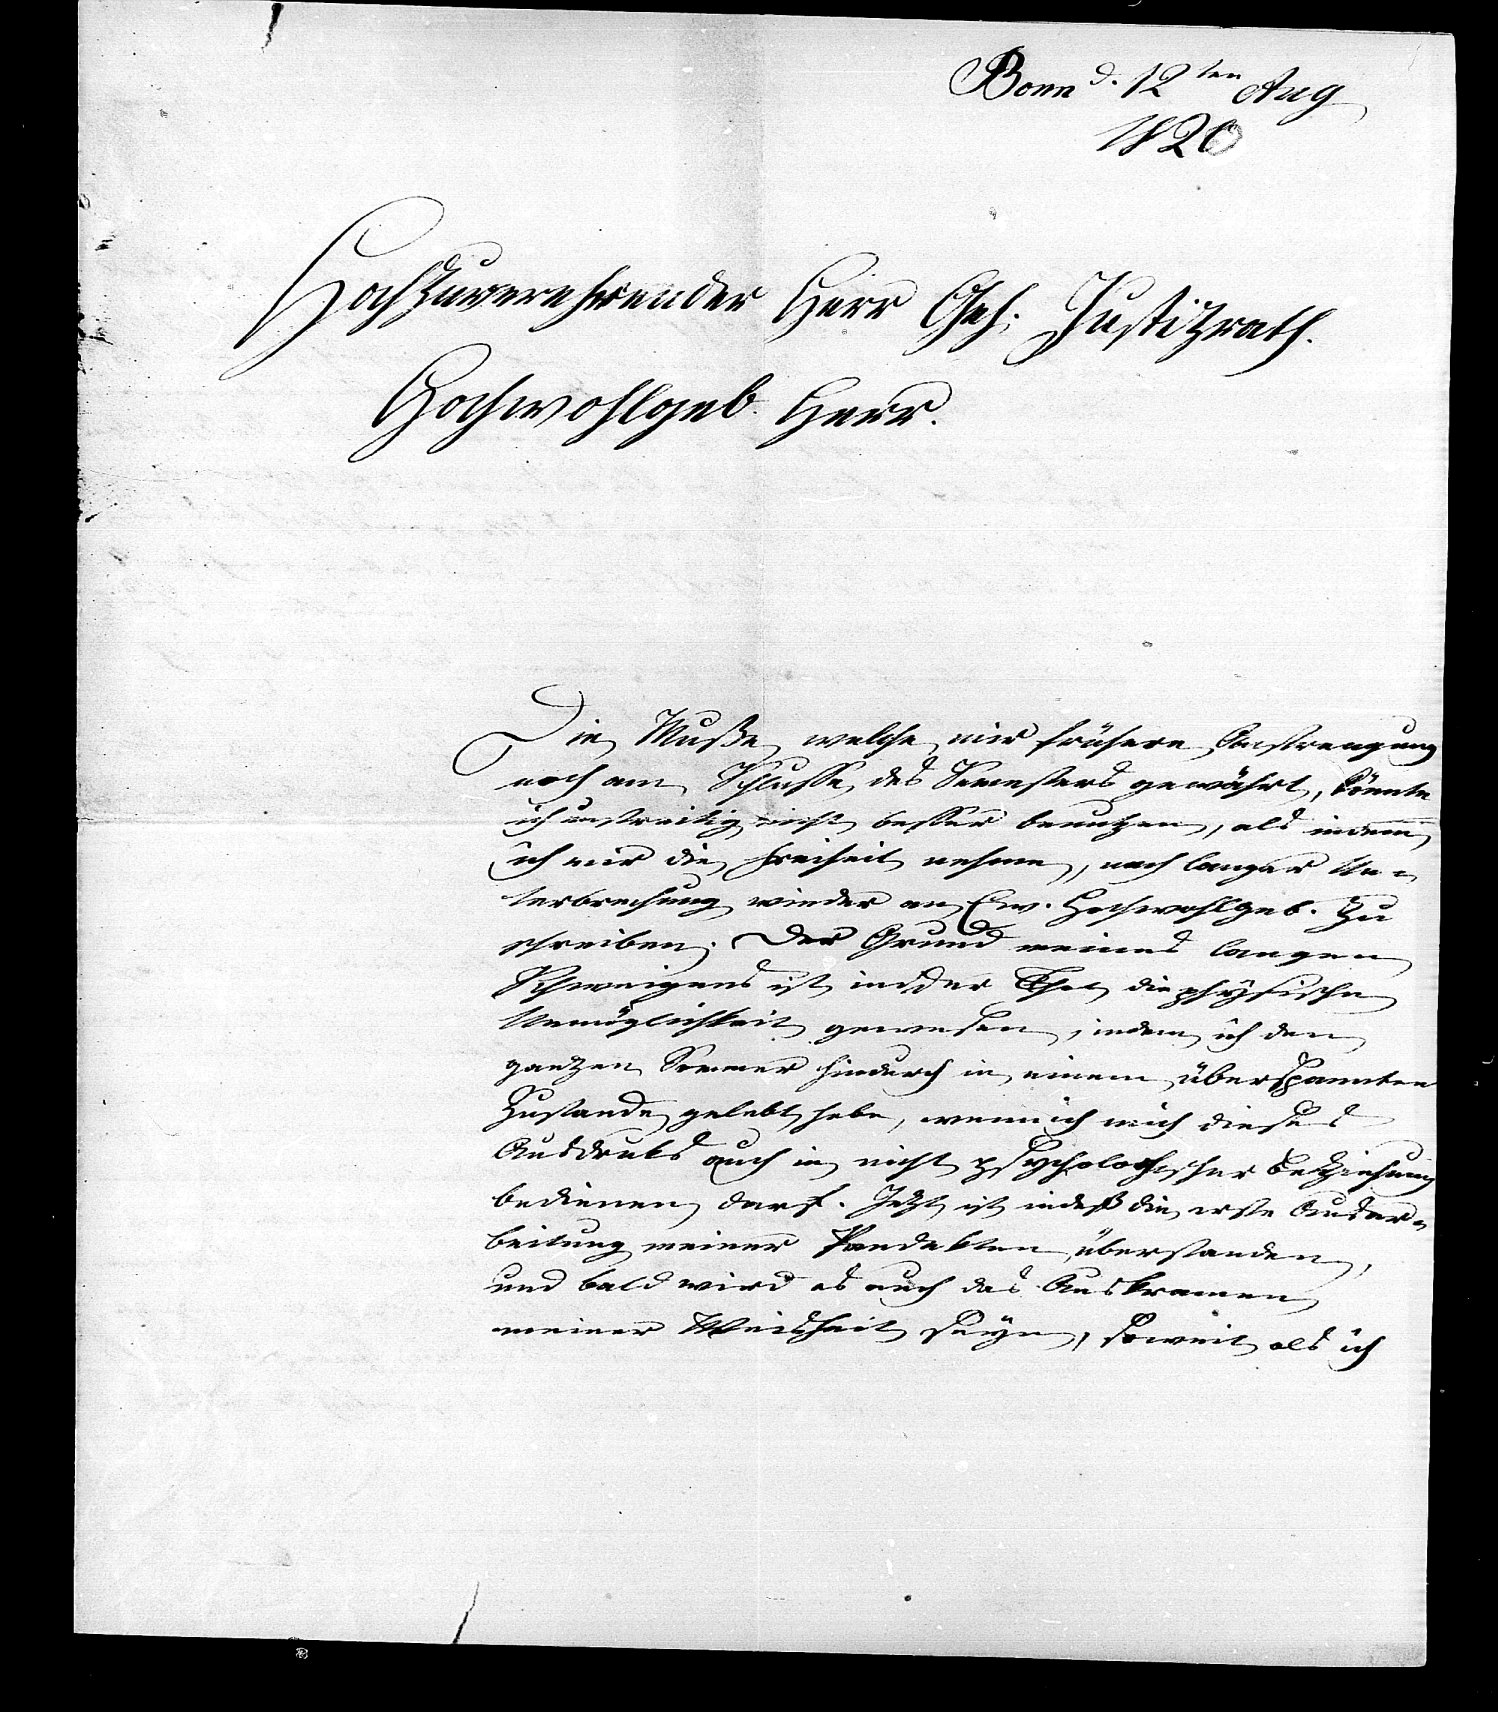 Bonn d. 12ten Aug
1820
Hochzuverehrender Herr Geh. Justizrath.
Hochwohlgeb. Herr.
Die Muße, welche mir frühere Anstrengung
noch am Schlusse des Semesters gewährt, könnte
ich unstreitig nicht besser benutzen, als indem
ich mir die Freiheit nehme, nach langer Un-
terbrechung wieder an Ew. Hochwohlgeb. zu
schreiben. Der Grund meines langen
Schweigens ist in der That die physische
Unmöglichkeit gewesen, indem ich den
ganzen Sommer hindurch in einem überspannten
Zustande gelebt habe, wenn ich mich dieses
Ausdruks auch in nicht psychologischer Beziehung
bedienen darf. Jetzt ist indeß die erste Ausar-
beitung meiner Pandekten überstanden,
und bald wird es auch das Auskramen
meiner Weisheit seyn, soweit als ich